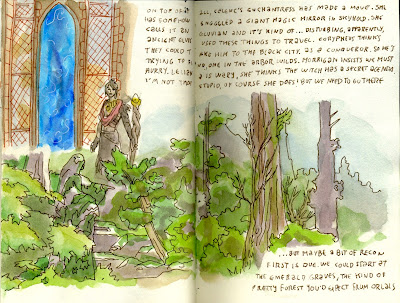 ON TOP OF
HAS SOMEHOW
CALLS IT AN
ANCIENT ELUVIAN
THEY COULD T
TRYING TO
HURRY. LELIANA
I'M NOT THAT
ALL, CELENE'S ENCHANTRESS HAS MADE A MOVE. SHE
SMUGGLED A GIANT MAGIC MIRROR IN SKYHOLD. SHE
ELUVIAN AND IT'S KIND OF... DISTURBING. APPARENTLY,
USED THESE THINGS TO TRAVEL. CORYPHEUS THINKS
TAKE HIM TO THE BLACK CITY, AS A CONQUEROR. SO HE'S
ONE IN THE ARBOR WILDS. MORRIGAN INSISTS WE MUST
A IS WARY, SHE THINKS THE WITCH HAS A SECRET AGENDA
STUPID, OF COURSE SHE DOES! BUT WE NEED TO GO THERE
...BUT MAYBE A BIT OF RECON
FIRST IS DUE. WE COULD START AT
THE EMERALD GRAVES, THE KIND OF
PRETTY FOREST YOU'D EXPECT FROM ORLAIS